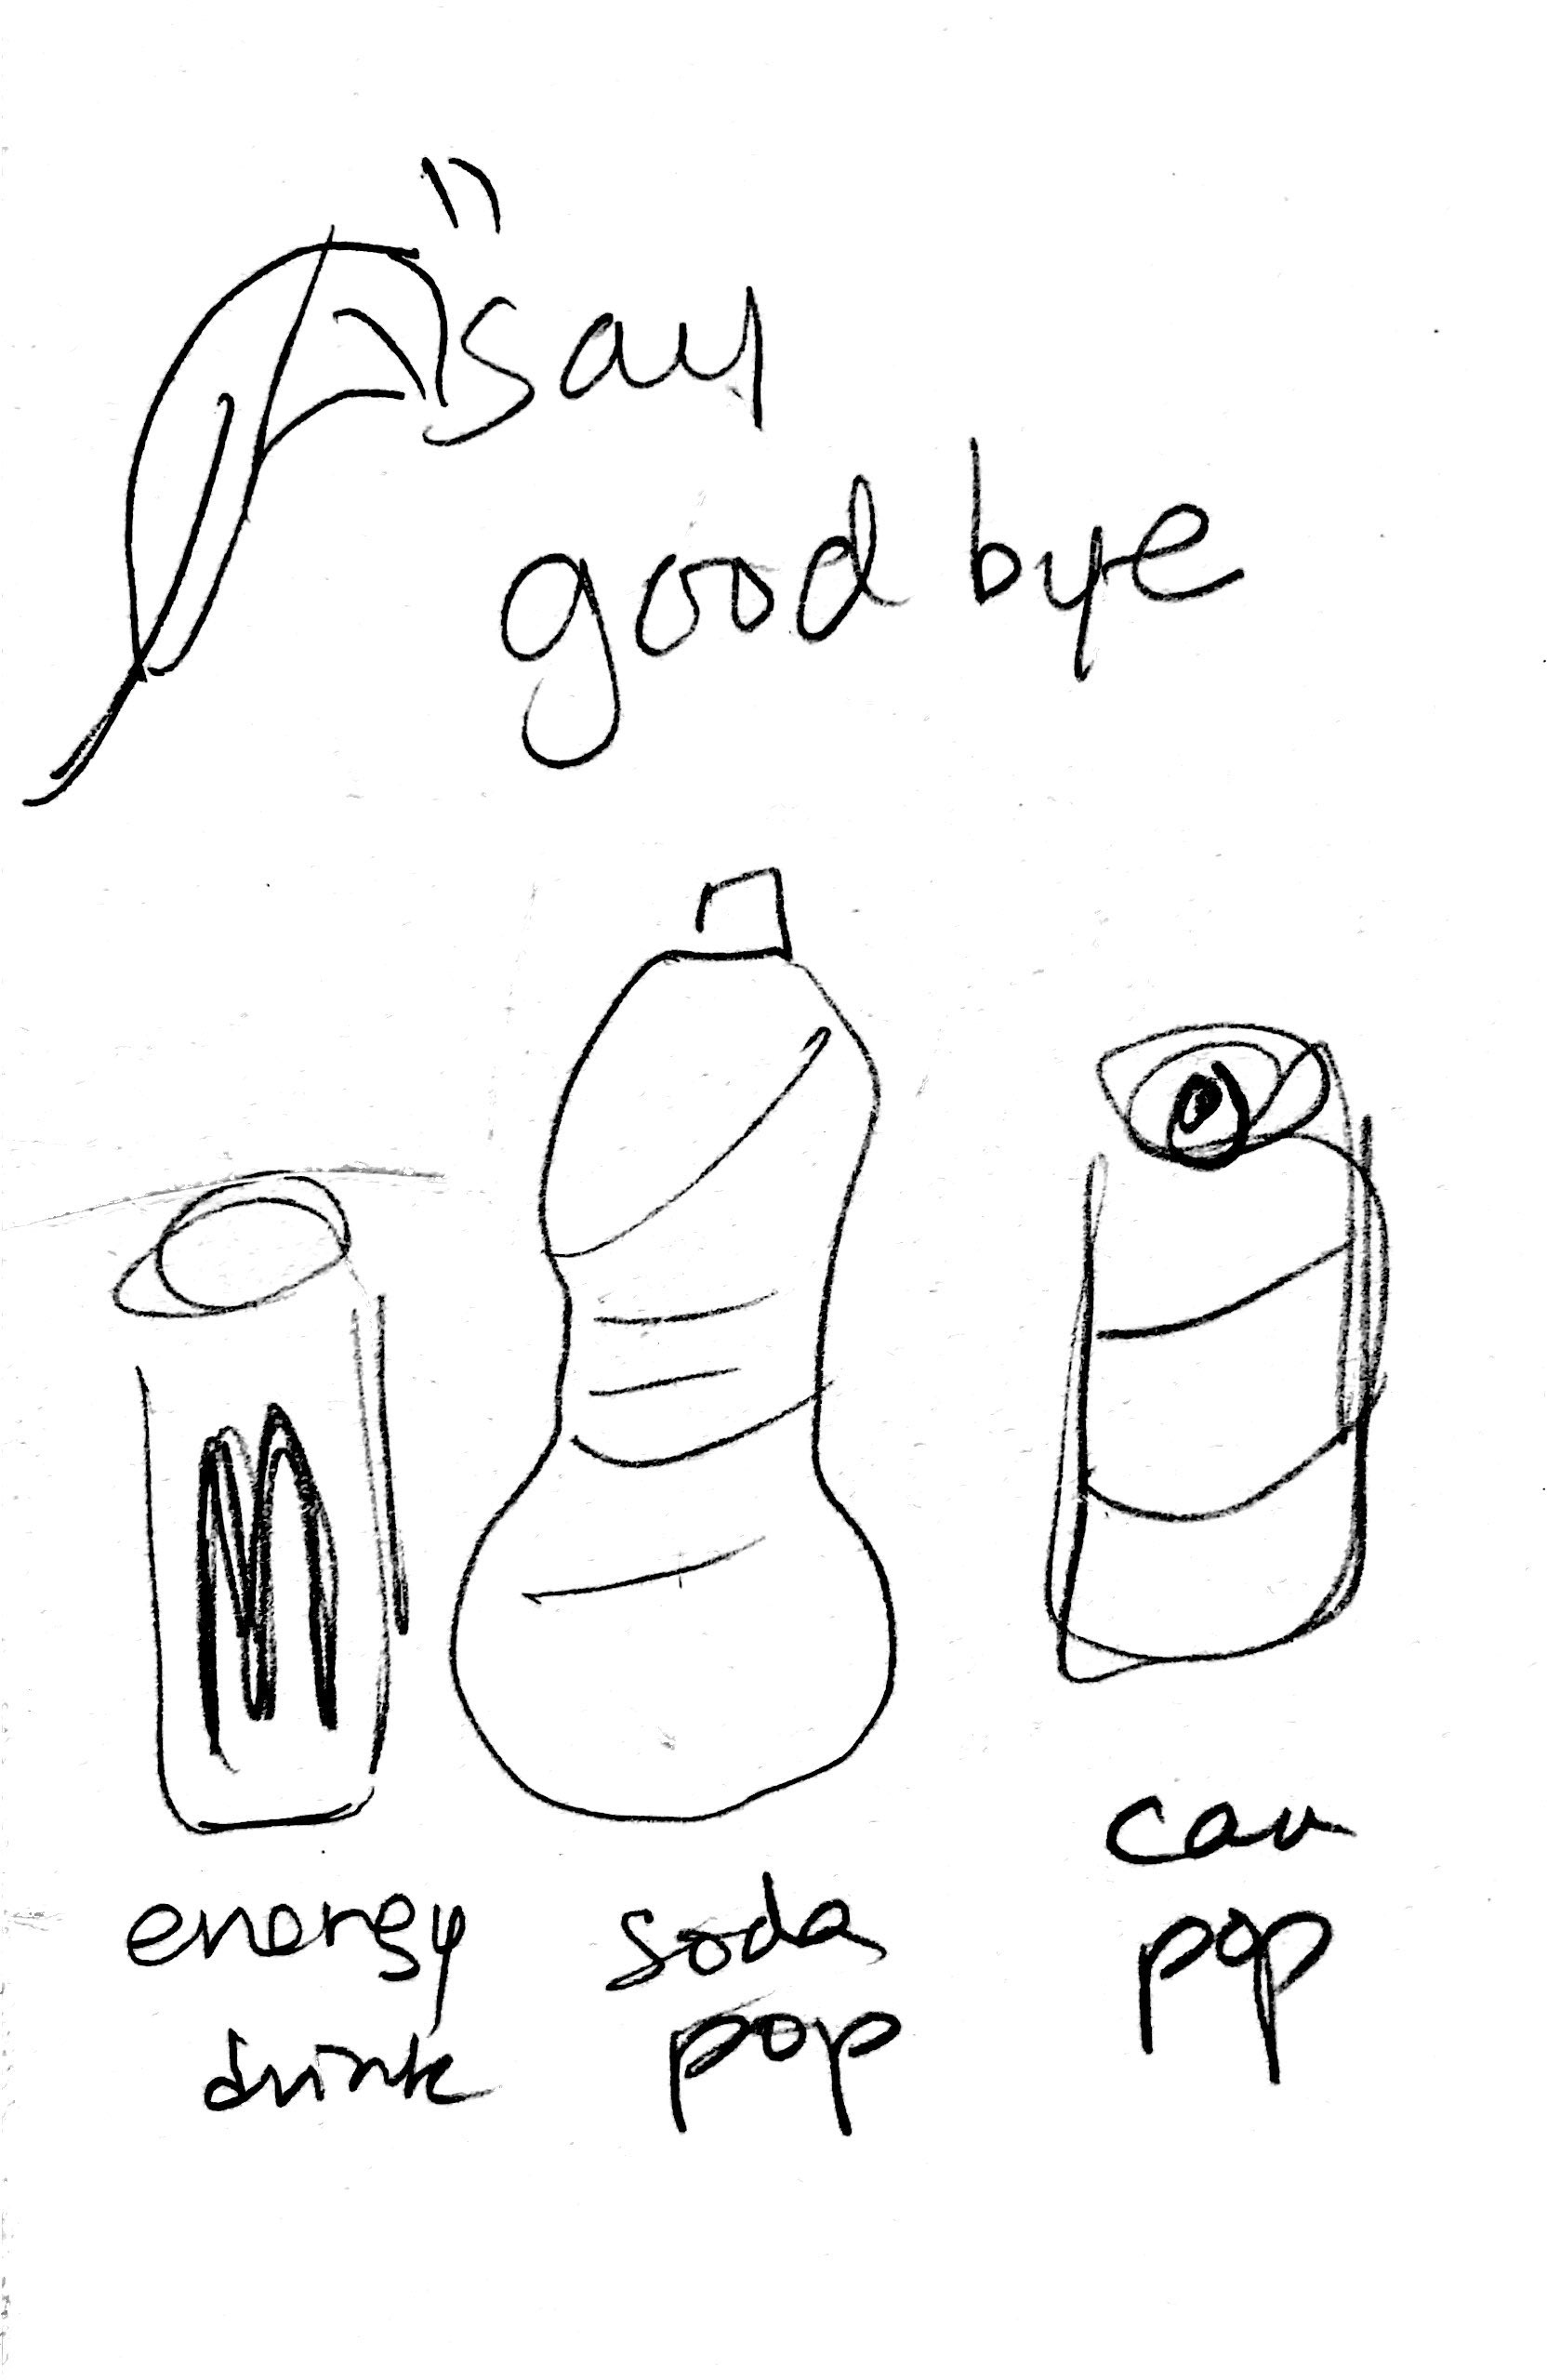 say
good bye
M
energy
drink
soda
pop
can
pop